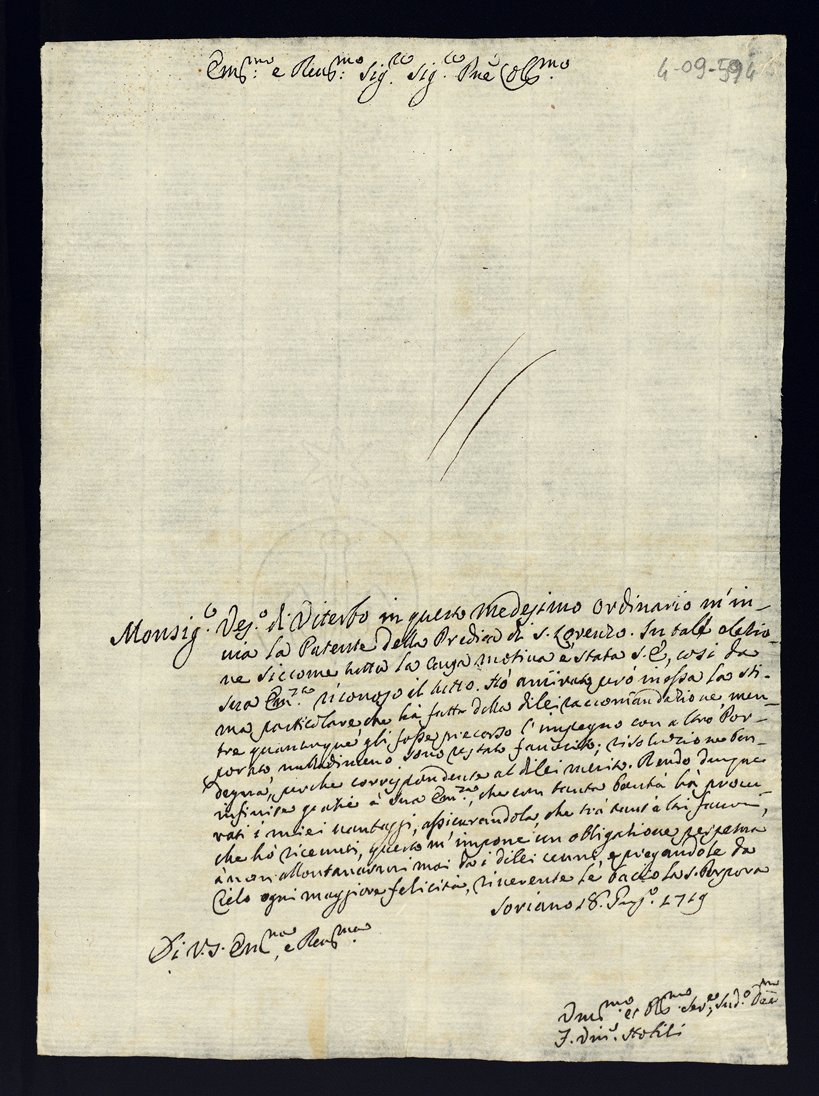 Em.mo e Rev.mo Sig.re Sig.re Pne Col.mo
4-09-594
Monsig.e Ves.o di Viterbo in questo medesimo ordinario m'in-
via la Patente della Predica di S. Lorenzo. In tale elettio-
ne siccome tutta la causa motiva è stata S.E., così da
sua Em.za riconosco il tutto. Hò ammirato però in essa la sti-
ma particolare che hà fatto della di lei raccomandazione, men-
tre quantunque gli fosse precorso l'impegno con altro Por-
porato, nulladimeno sono restato favorito; risoluzione ben
degna, perche corrispondente al di lei merito. Rendo dunque
infinite grazie à sua Em.za, che con tanta bontà hà procu-
rati i miei vantaggi, assicurandola che trà tanti altri favori,
che hò ricevuti, questo m'impone un obligatione perpetua
à non allontanarmi mai da i di lei cenni, e pregandole da
Cielo ogni maggiore felicità, riverente le bacio la S. Porpora
Soriano 18. 1719
Di V.S. Em.ma, e Rev.ma
et Serv.e
F. Nobili